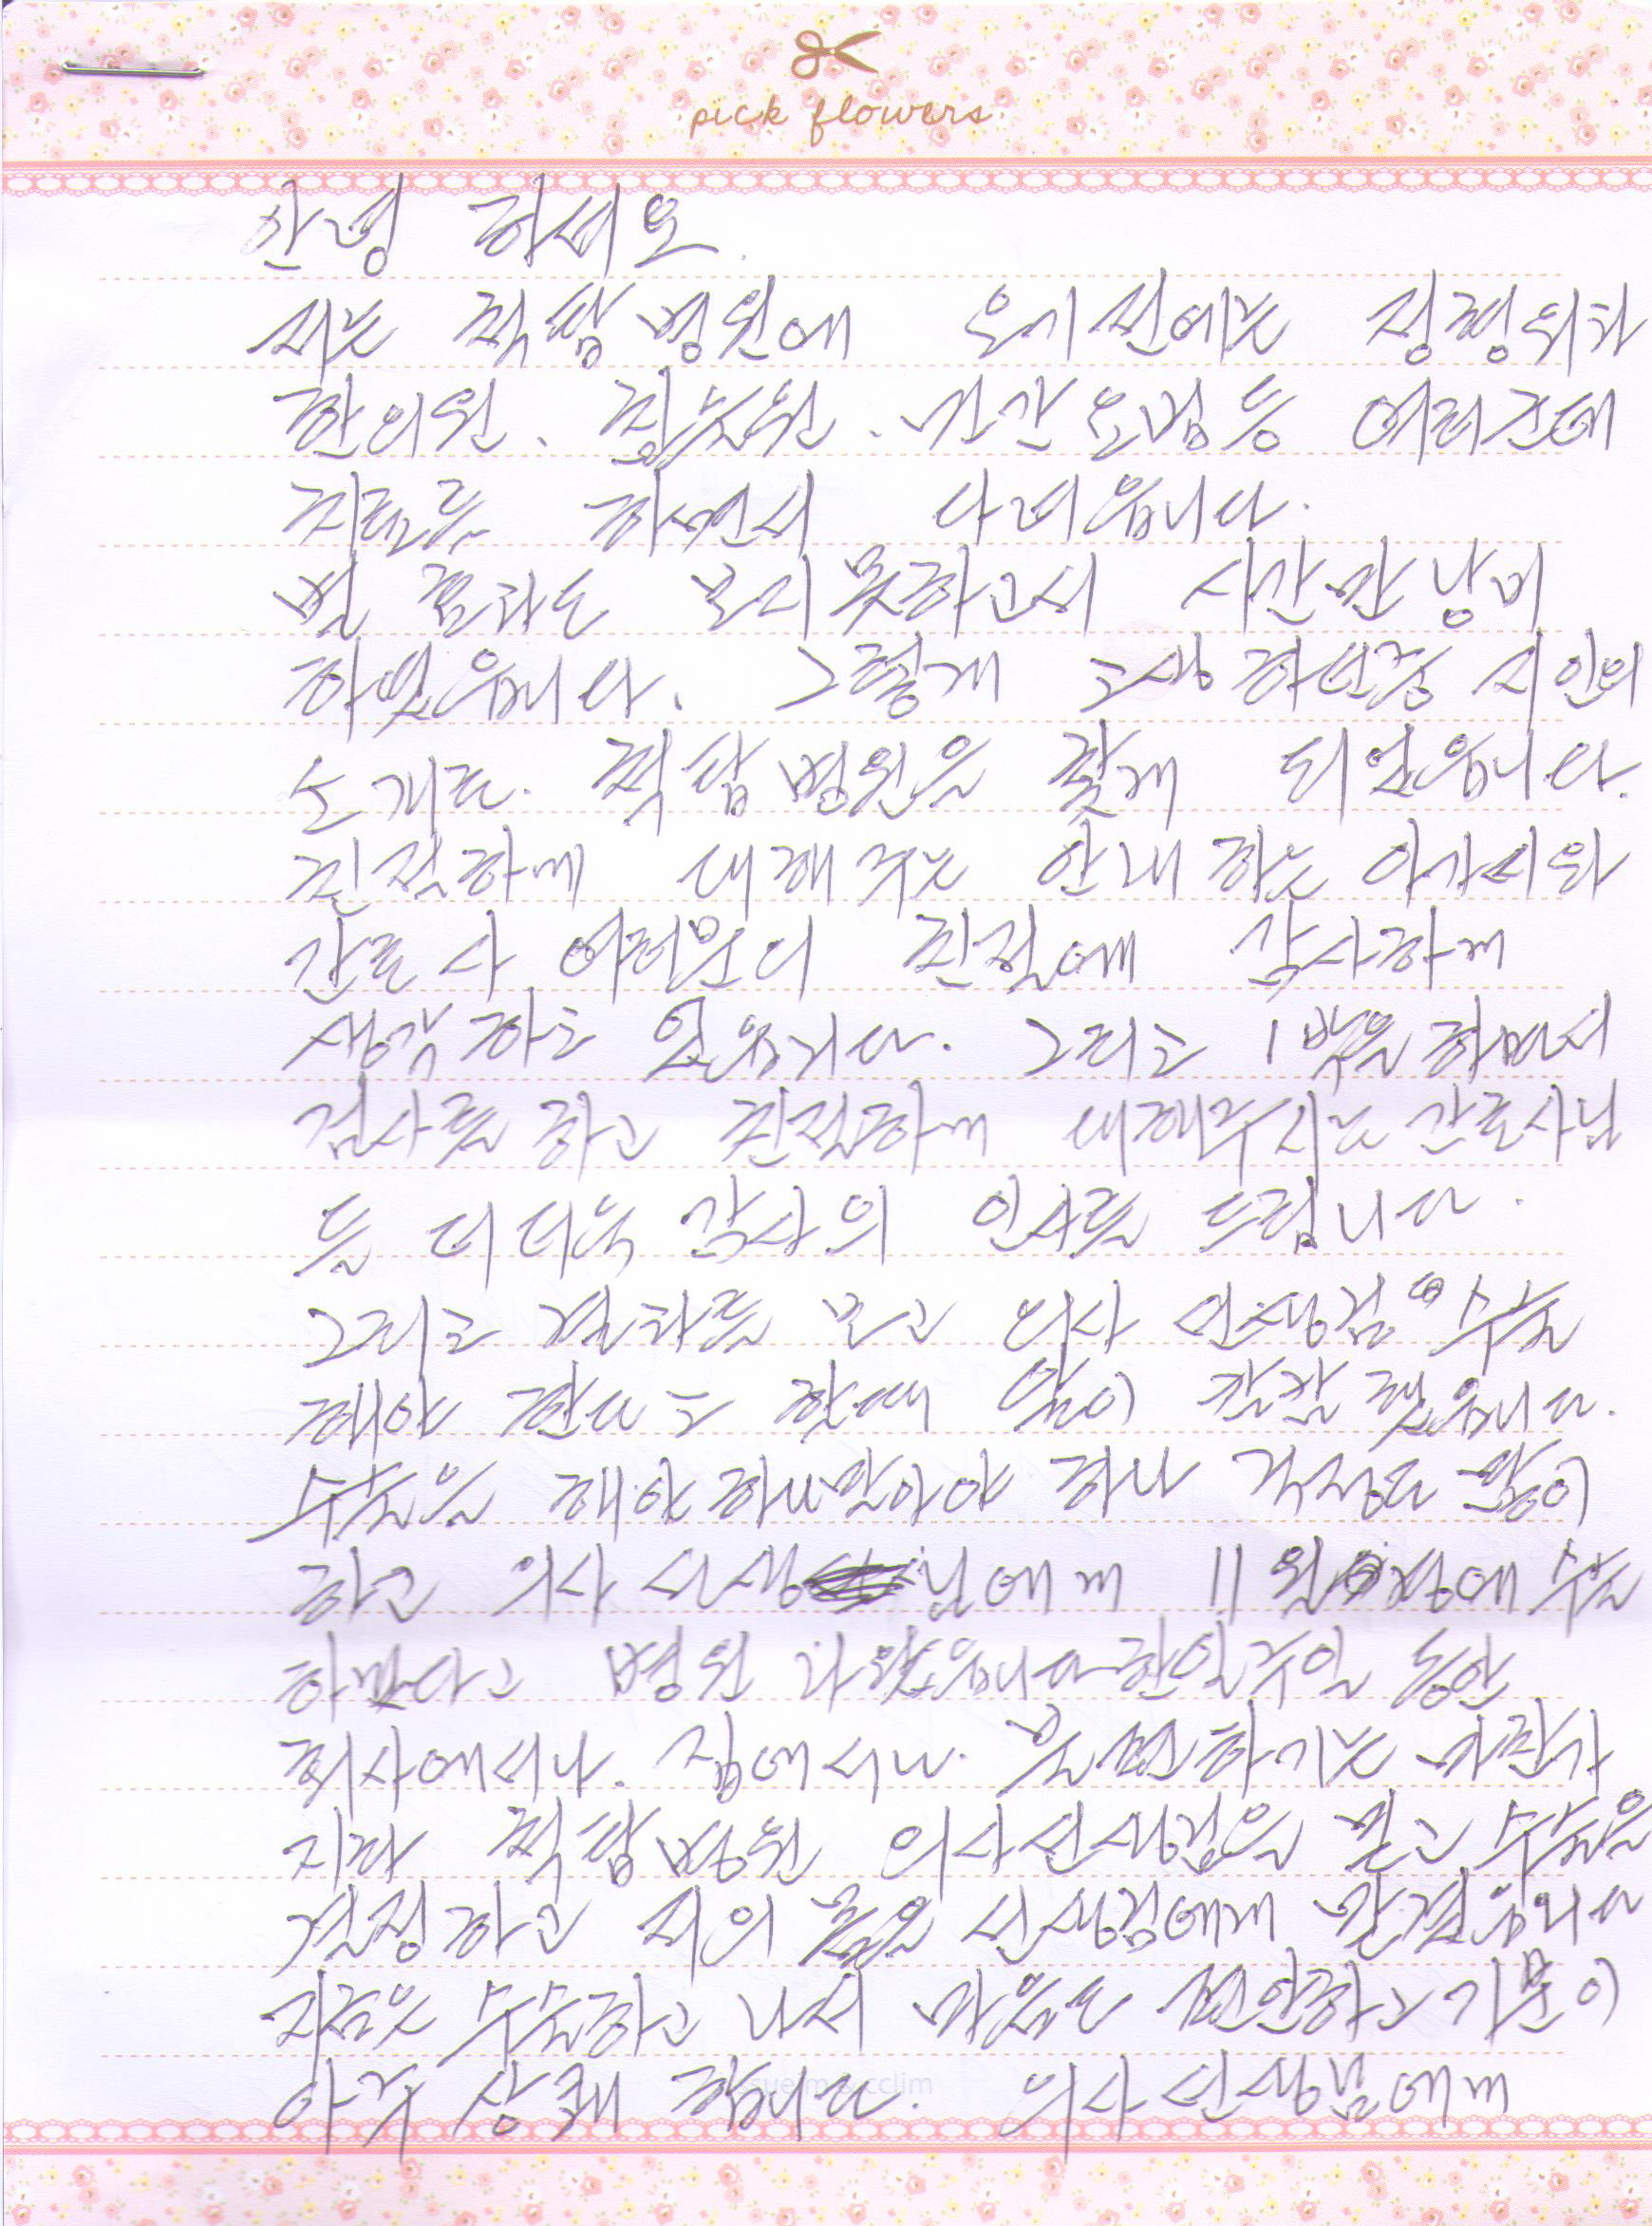 pick flowers
안녕 하세요.
저는 척탑병원에 오기전에는 정형외과
한의원. 침놓원. 민간요법등 여러곳에
치료를 하면서 다녀읍니다.
별 효과도 보지못하고서 시간만 낭비
하였읍니다. 그렇게 고생하던중 지인의
소개로. 척탑병원을 찾게 되었읍니다.
친절하게 대해주는 안내하는 아가씨와
간호사 여러분의 친절에 감사하게
생각하고 있읍니다. 그리고 1박을 하면서
검사를 하고 친절하게 대해주시는 간호사님
들 더더욱 감사의 인사를 드립니다.
그리고 결과를 보고 의사 선생님이 수술
해야 한다고 할때 앞이 캄캄 했읍니다.
수술을 해야하나 말아야 하나 걱정도 많이
하고 의사 선생님에게 11월 에 수술
하겠다고 병원 나왔읍니다 한 일주일 동안
회사에서나. 집에서나. 불편하기는 마찬가
지라 척탑병원 의사선생님을 믿고 수술을
결정하고 저의 몸을 선생님에게 맡겼읍니다
지금은 수술하고 나서 마음도 편안하고 기분이
아주 상쾌 합니다. 의사 선생님에게